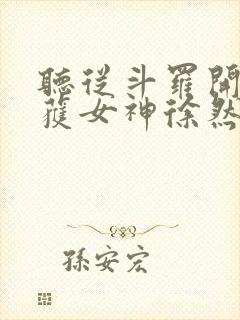 聽從斗羅開
獲女神徐然
孫安宏